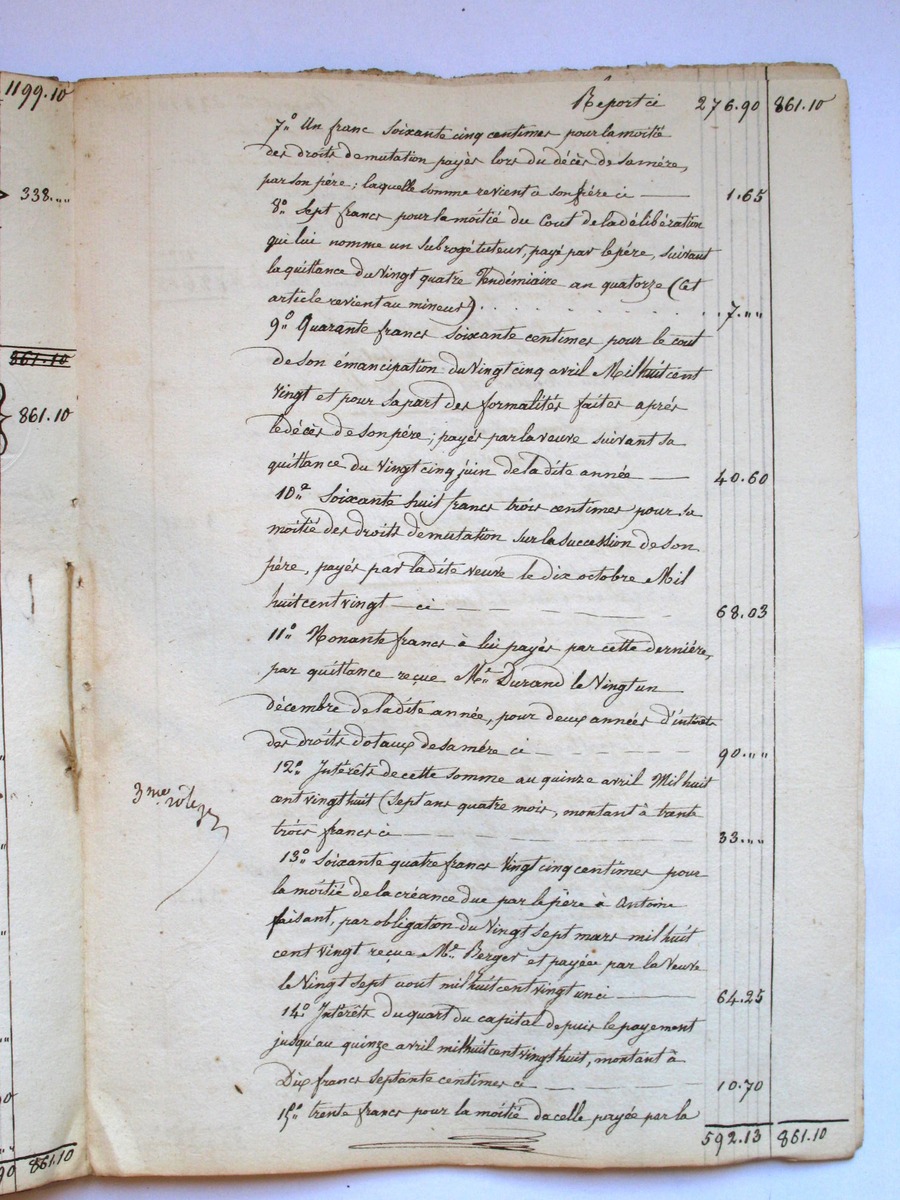 1199.10
338.""
861.10
861.10
90 861.10
Report ci 276.90 861.10
7.° Un franc soixante cinq centimes pour la moitié
des droits de mutation payés lors du décès de sa mère,
par son père; laquelle somme revient à son frère ci — 1.65
8.° Sept francs pour la moitié du Cout de la délibération
qui lui nomme un subrogé tuteur, payé par le père, suivant
la quittance du vingt quatre Vendémiaire an quatorze (Cet
article revient au mineur) . . . . . . . . . . 7.""
9.° Quarante francs soixante centimes pour le cout
de son émancipation du Vingt cinq avril Mil huit cent
vingt et pour sa part des formalités faites après
le décès de son père; payés par la veuve suivant sa
quittance du vingt cinq juin de ladite année — 40.60
10.° Soixante huit francs trois centimes pour sa
moitié des droits de mutation sur la succession de son
père, payés par ladite veuve le dix octobre Mil
huit cent vingt — ci — — — — 68.03
11.° Nonante francs à lui payés par cette dernière,
par quittance reçue M.e Durand le Vingt un
décembre de ladite année, pour deux années d'intérêts
des droits dotaux de sa mère ci — — — — 90.""
12.° Intérêts de cette somme au quinze avril Mil huit
cent vingt huit (sept ans quatre mois, montant à trente
trois francs ci — — — — — 33.""
3me rôle
13.° Soixante quatre francs Vingt cinq centimes pour
la moitié de la créance due par le père à Antoine
faisant, par obligation du Vingt sept mars mil huit
cent vingt reçue M.e Berger et payée par la Veuve
le Vingt sept aout mil huit cent vingt un ci — 64.25
14.° Intérêts du quart du capital depuis le payement
jusqu'au quinze avril mil huit cent vingt huit, montant à
Dix francs septante centimes ci — — — 10.70
15.° trente francs pour la moitié de celle payée par le
592.13 861.10